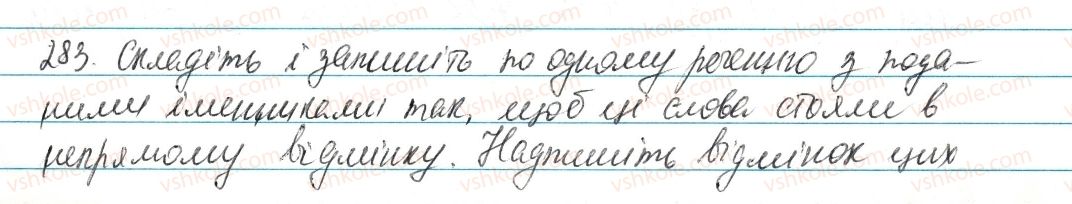 283. Складіть і запишіть по одному реченню з пода-
ними іменниками так, щоб ці слова стояли в
непрямому відмінку. Надпишіть відмінок цих